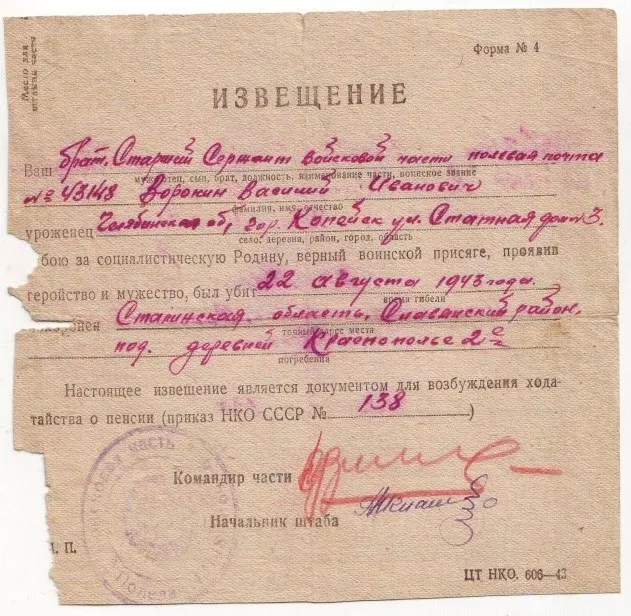 Место для
штампа части
Форма № 4
ИЗВЕЩЕНИЕ
Ваш брат, Старший Сержант Войсковой части полевая почта
муж, отец, сын, брат, должность, наименование части, воинское звание
№ 43148 Ворокин Василий Иванович
фамилия, имя, отчество
уроженец Челябинская об, гор. Копейск ул. Статная дом 3.
село, деревня, район, город, область
бою за социалистическую Родину, верный воинской присяге, проявив
геройство и мужество, был убит 22 августа 1943 года.
время гибели
Сталинская область, Славянский район,
точный адрес места
под. деревней Краснополье 2е
погребения
Настоящее извещение является документом для возбуждения хода-
тайства о пенсии (приказ НКО СССР № 138 )
Командир части
Начальник штаба
М. П.
ЦТ НКО. 606—43